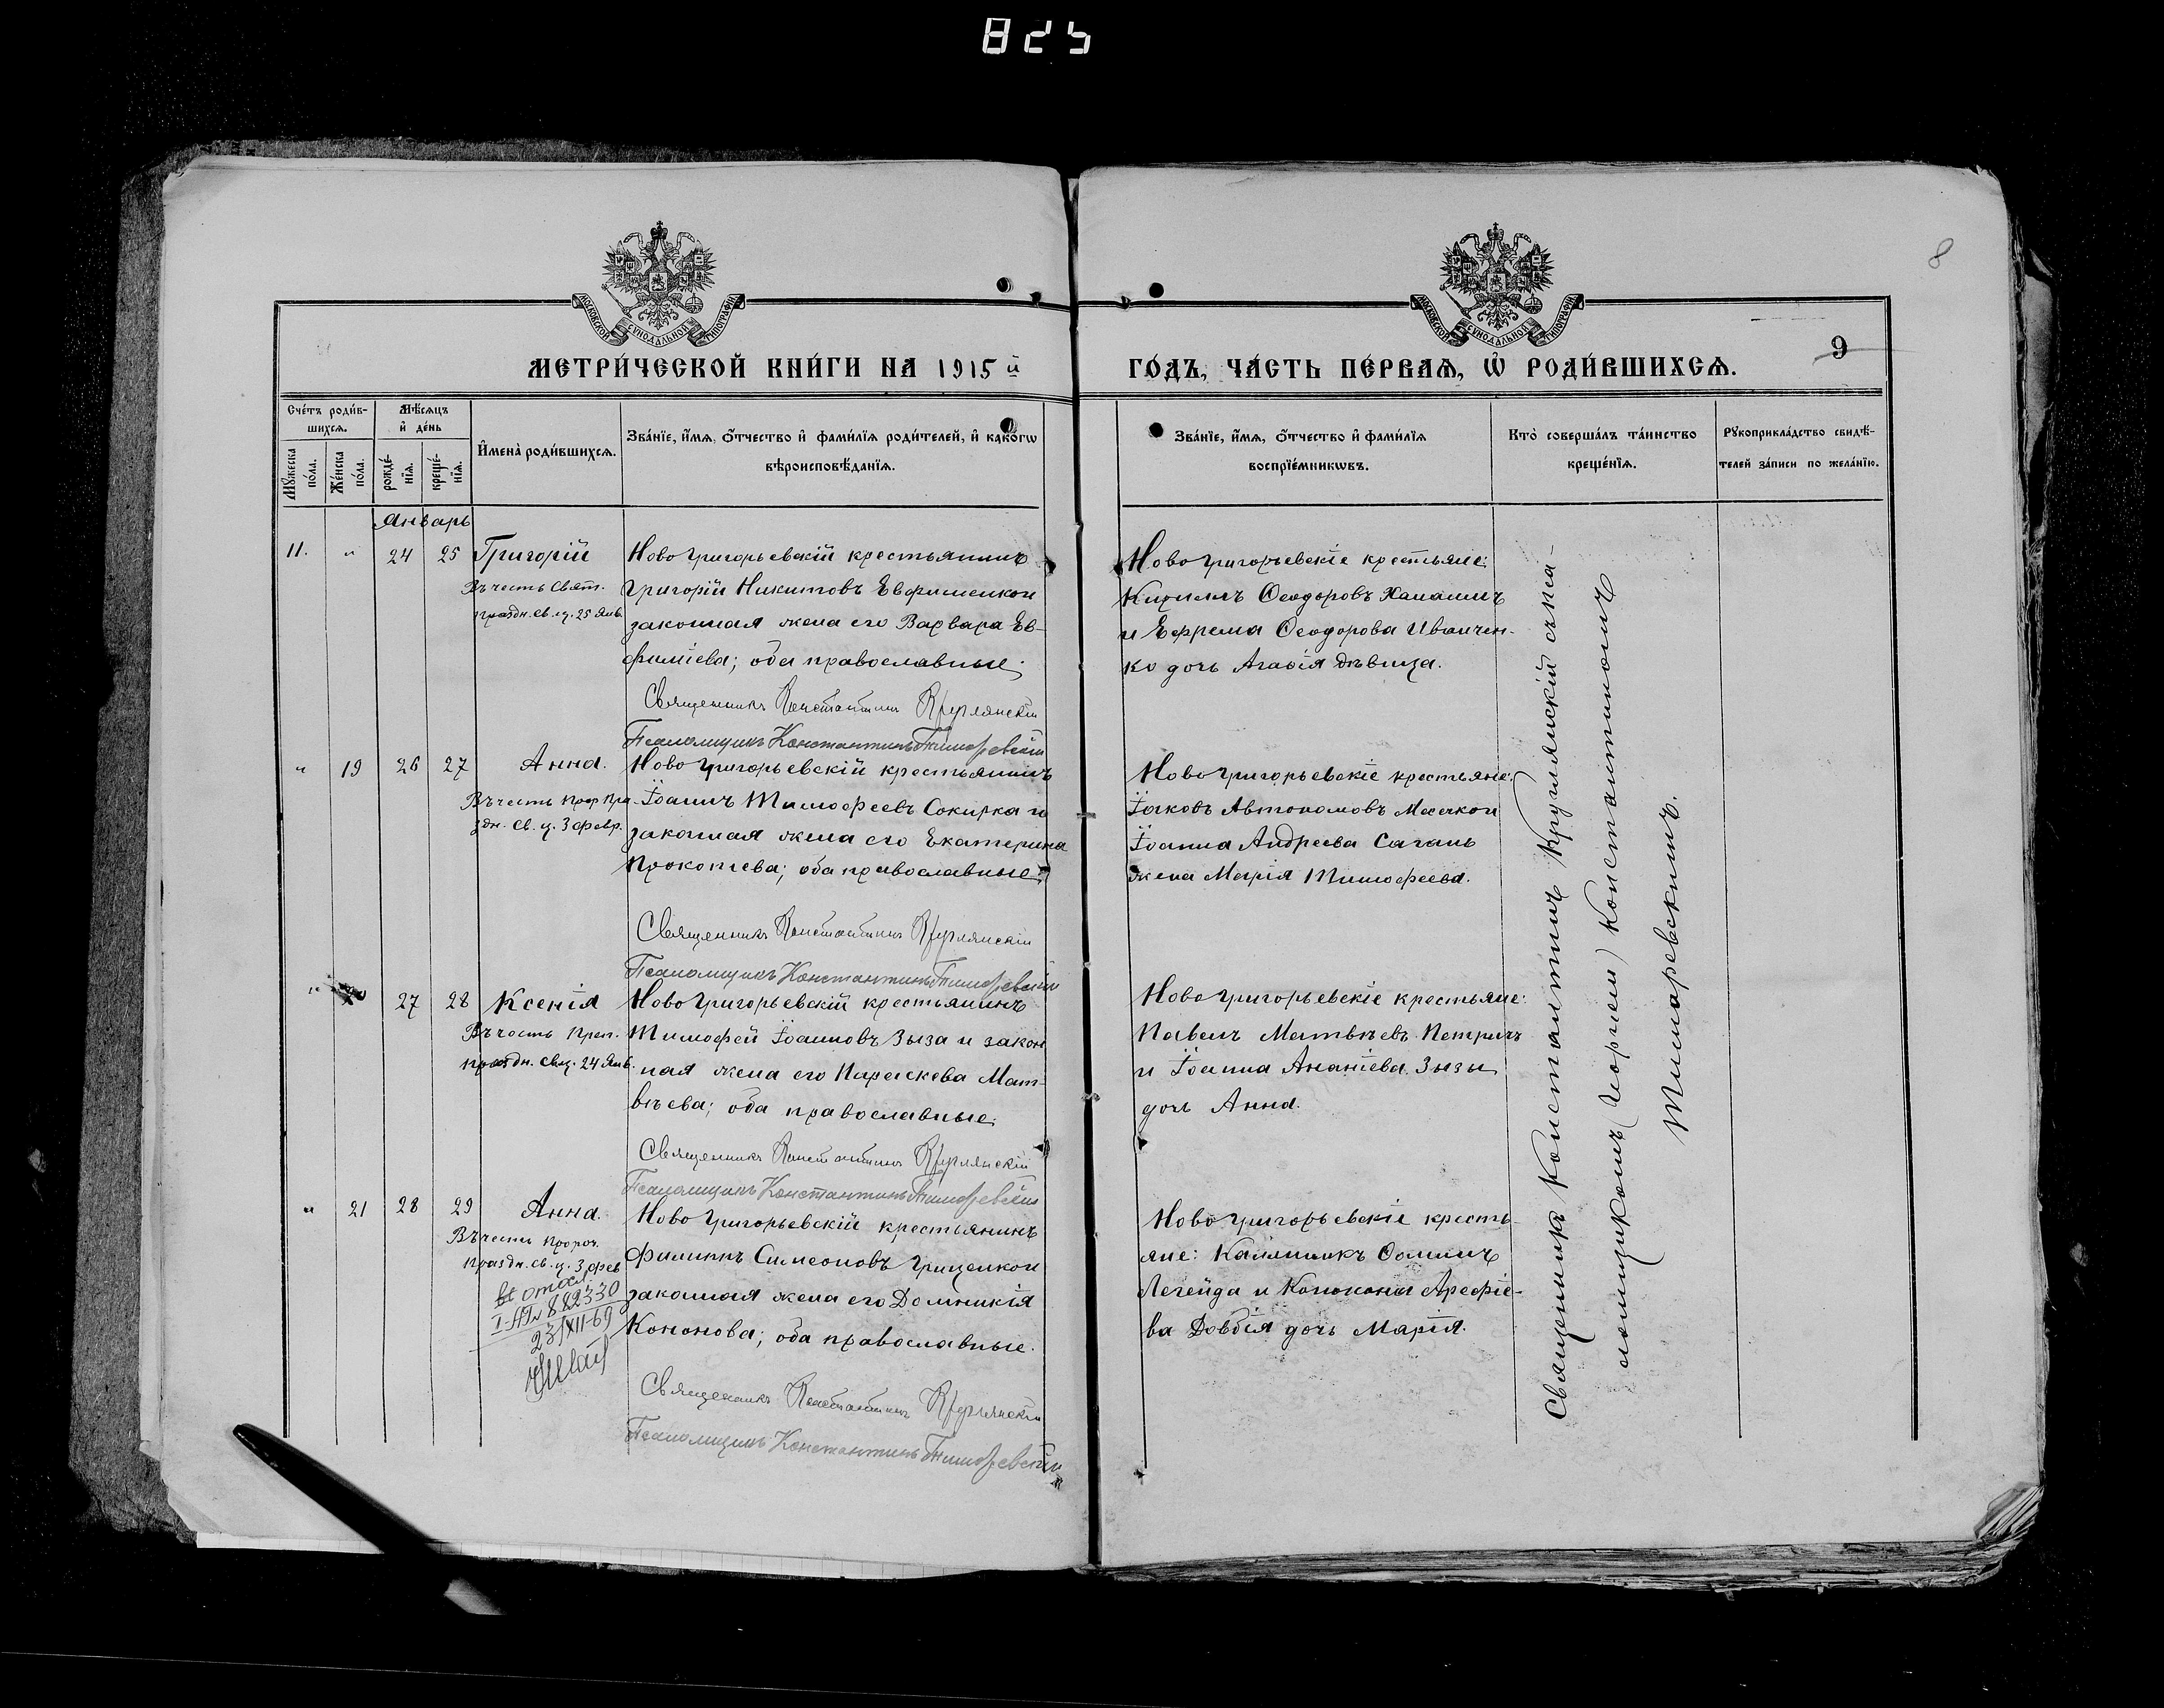 825
8
МОСКОВСКОЙ СУНОДАЛЬНОЙ ТИПОГРАФІИ
МОСКОВСКОЙ СУНОДАЛЬНОЙ ТИПОГРАФІИ
9
МЕТРИ́ЧЕСКОЙ КНИ́ГИ НА 1915й
ГО́ДЪ, ЧА́СТЬ ПЕ́РВАѦ, Ѡ҆ РОДИ́ВШИХСѦ.
Сче́тъ роди́в-
шихсѧ.
Мѣ́сѧцъ
и҆ де́нь
Мꙋ́жеска
по́ла.
Же́нска
по́ла.
рожде́-
нїѧ.
креще́-
нїѧ.
И҆мена̀ роди́вшихсѧ.
Зва́нїе, и҆́мѧ, ѻ҆́тчество и҆ фами́лїѧ роди́телей, и҆ како́гѡ
вѣроисповѣ́данїѧ.
Зва́нїе, и҆́мѧ, ѻ҆́тчество и҆ фами́лїѧ
воспрїе́мникѡвъ.
Кто̀ соверша́лъ та́инство
креще́нїѧ.
Рꙋкоприкла́дство свидѣ́-
телей за́писи по жела́нїю.
Январь
11. " 24 25 Григорій
Въ честь Свят.
праздн. св. ц. 25 Янв.
Новогригорьевскій крестьянинъ
Григорій Никитовъ Евфименко и
законная жена его Варвара Ев-
фиміева; оба православные.
Священникъ Константинъ Круглянскій
Псаломщикъ Константинъ Тиморевскій
Новогригорьевскіе крестьяне:
Кириллъ Ѳеодоровъ
и Ефрема Ѳеодорова Иванчен-
ко дочь Агафія дѣвица.
" 19 26 27 Анна.
Въ честь Прор. Пра-
здн. св. ц. 3 февр.
Новогригорьевскій крестьянинъ
Іоаннъ Тимофеевъ Сокирка и
законная жена его Екатерина
Прокопіева; оба православные.
Священникъ Константинъ Круглянскій
Псаломщикъ Константинъ Тиморевскій
Новогригорьевскіе крестьяне:
Іаковъ Автономовъ
Іоанна Андреева Сагань
жена Марія Тимофеева.
" 20 27 28 Ксенія
Въ честь Преп.
праздн. св. ц. 24 Янв.
Новогригорьевскій крестьянинъ
Тимофей Іоанновъ Зыза и закон
ная жена его Параскева Мат-
вѣева; оба православные.
Священникъ Константинъ Круглянскій
Псаломщикъ Константинъ Тиморевскій
Новогригорьевскіе крестьяне:
Павелъ Матвѣевъ Петричъ
и Іоанна Ананіева Зызы
дочь Анна.
" 21 28 29 Анна.
Въ честь Пророч.
праздн. св. ц. 3 фев
882330
23/XII-69
Новогригорьевскій крестьянинъ
Филиппъ Симеоновъ Гриценко и
законная жена его Домникія
Кононова; оба православные.
Священникъ Константинъ Круглянскій
Псаломщикъ Константинъ Тиморевскій
Новогригорьевскіе кресть-
яне: Каллиникъ Ѳоминъ
Легейда и Конона Арефіе-
ва Довбія дочь Марія.
Священникъ Константинъ Круглянскій съ пса-
ломщикомъ Константиномъ